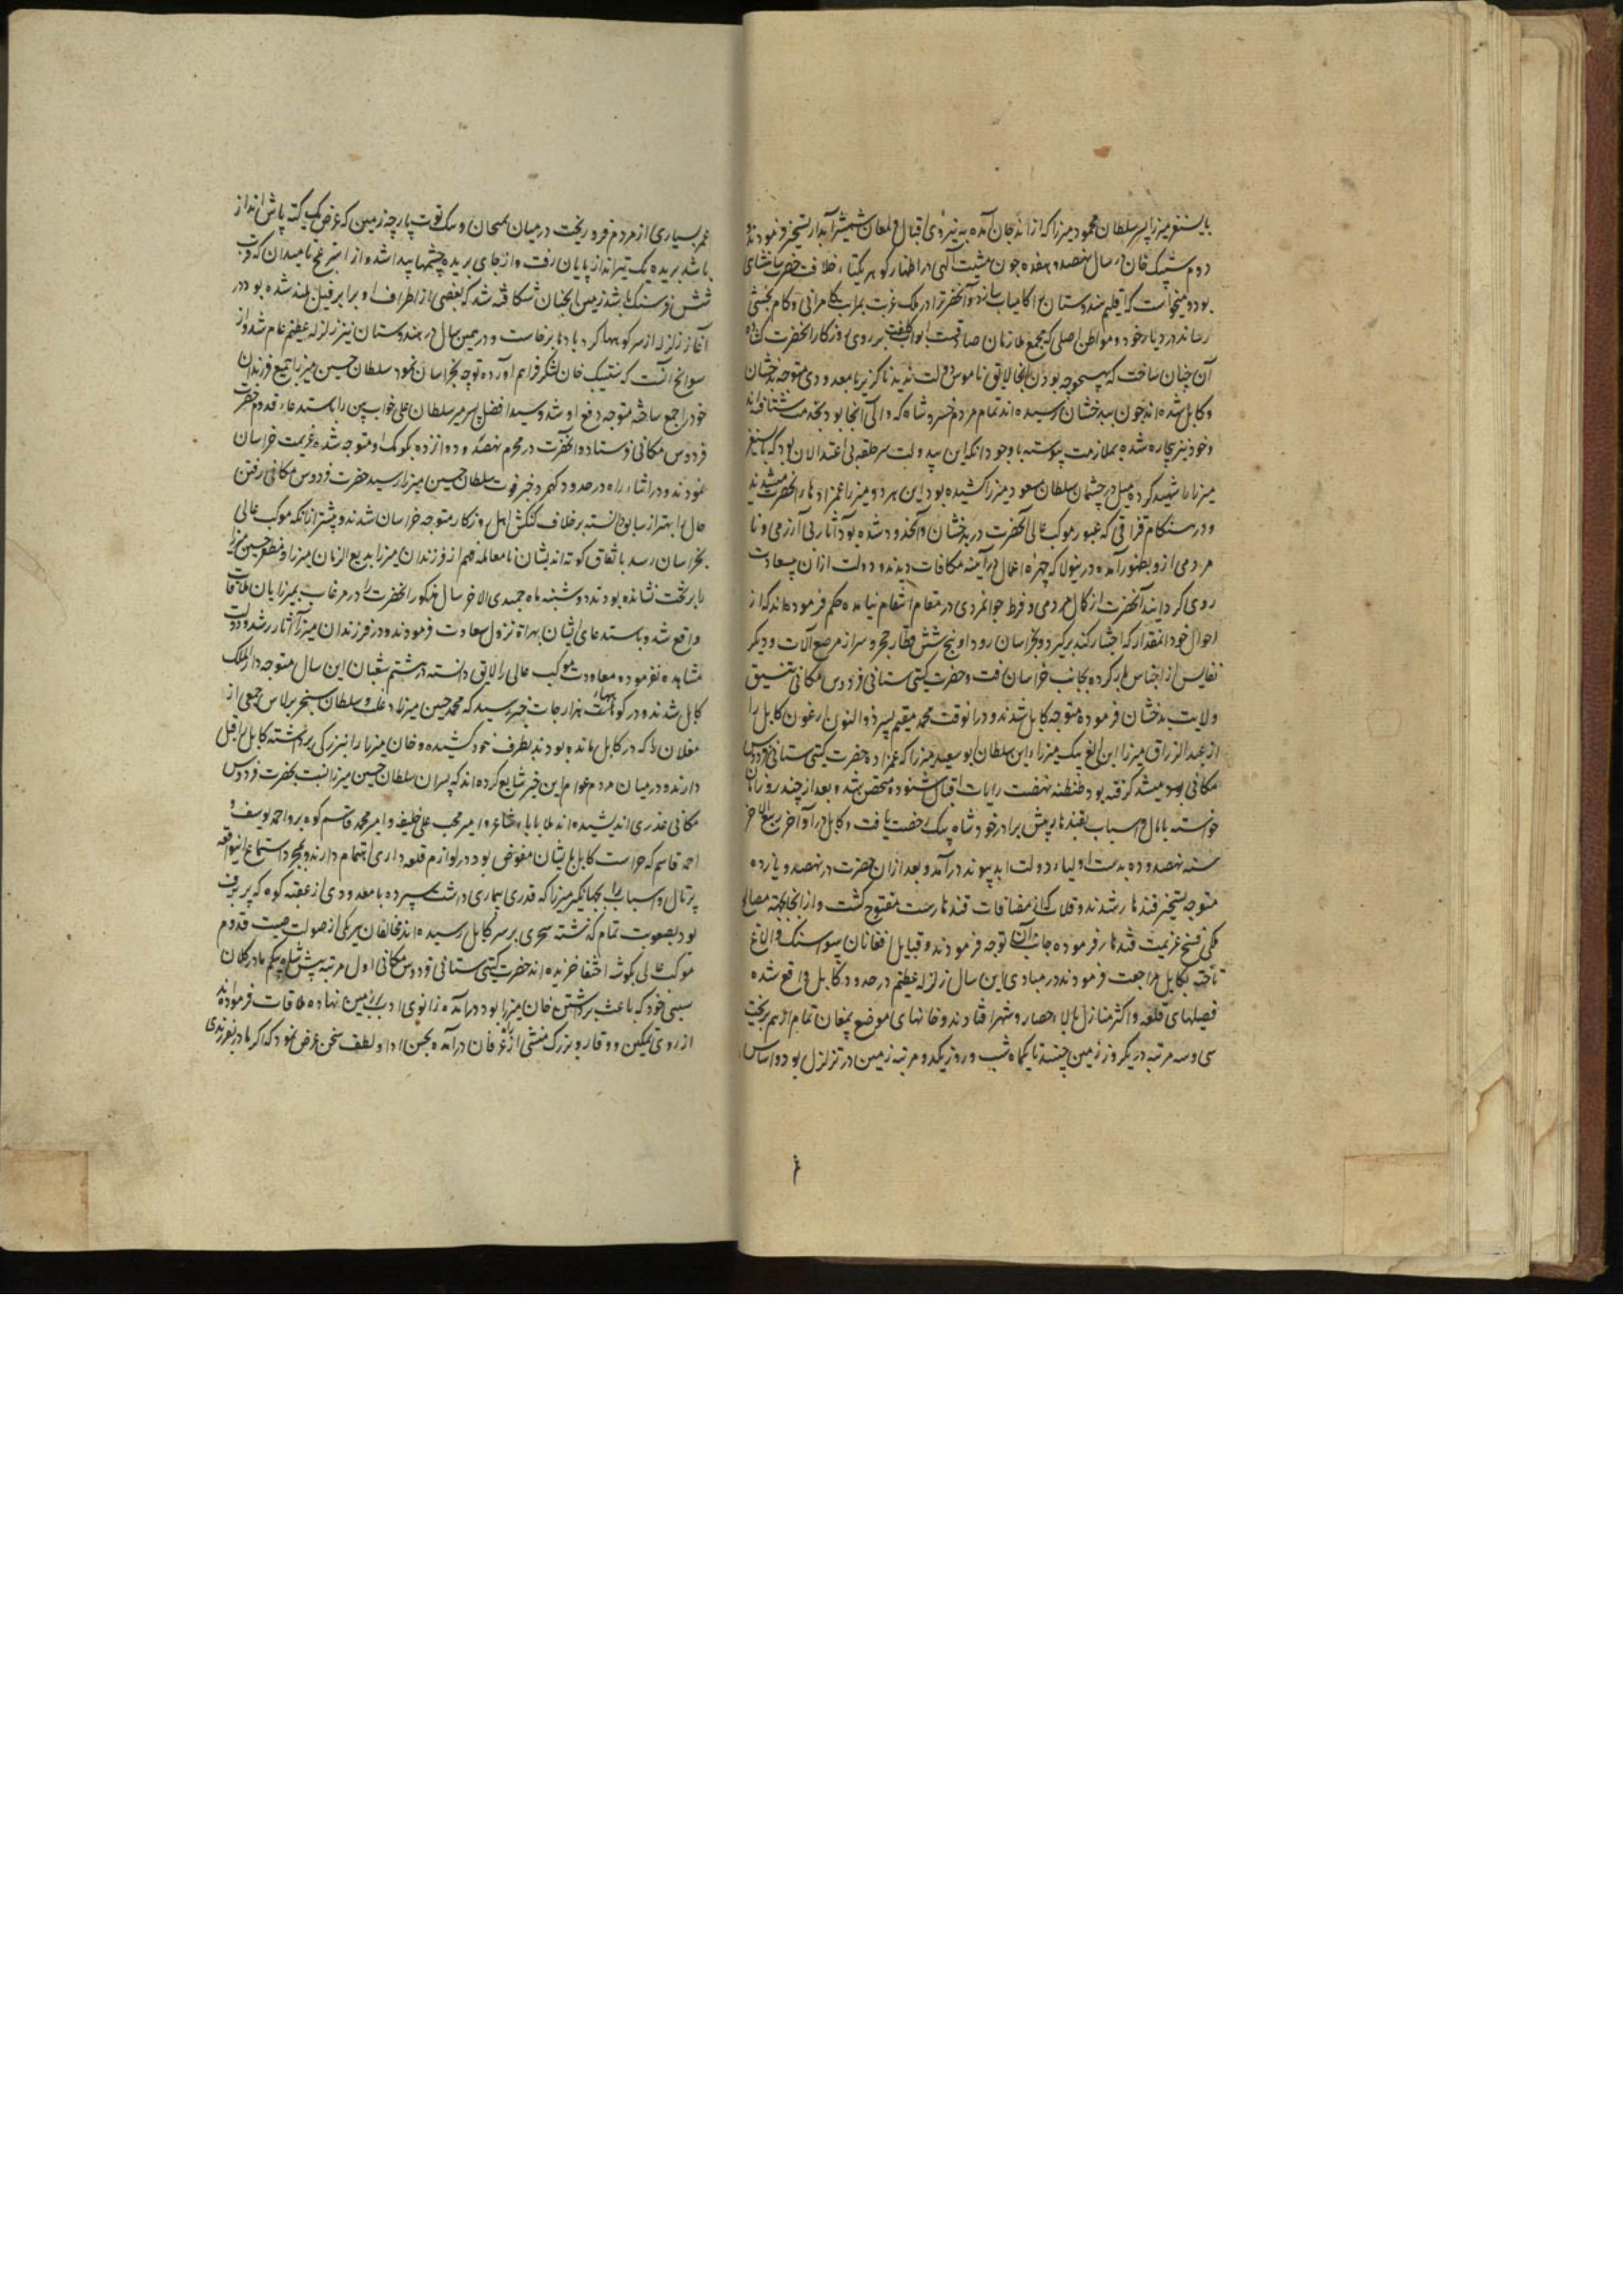 بایسنغر میرزا پسر سلطان محمود میرزا که از اندجان آمده به نیروی اقبال و لمعان شمشیر آبدار تسخیر فرمودند
دوم شیبک خان در سال نهصد و هفده چون مشیت آلهی در اظهار گوهر یکتاء خلافت حضرت شاهنشاهی
بود و میخواست که اقلیم هندوستان را کامیاب سازد و آنحضرترا در ملک غربت بمراتب کامرانی و کام بخشی
رساند در دیار خود و مواطن اصلی که مجمع ملازمان صداقت ابواب کلفت بر روی روزکار آنحضرت کشاده
آن چنان ساخت که بهیچوجه بودن آنجا لایق ناموس دولت ندیدند ناگزیر با معدودی متوجه بدخشان
و کابل شده اند چون ببدخشان رسیده اند تمام مردم خسروشاه که والی آنجا بود بخدمت شتافته اند
و خود نیز بیچاره شده بملازمت پیوسته با وجود آنکه این بیدولت سر حلقه بی اعتدالان بود که بایسنغر
میرزا را شهید کرده میل در چشمان سلطان مسعود میرزا کشیده بود این هر دو میرزا عمزادهاء آنحضرت میشدند
و در هنگام قزاقی که عبور موکب عالی آنحضرت در بدخشان واقع شده بود آثار بی آزرمی و نا
مردمی ازو بظهور آمده درینولا که چهره اعمال در آینه مکافات دیدند و دولت ازان بیسعادت
روی گردانید آنحضرت از کمال مردمی و فرط جوانمردی در مقام انتقام نیامده حکم فرموده اند که از
اموال خود آنمقدار که اختیار کند برگیرد و بخراسان رود او پنج شش قطار خچر و سرا از مرصع آلات و دیگر
نفایس از اجناس بار کرده بجانب خراسان رفت و حضرت گیتی ستانی فردوس مکانی تنسیق
ولایت بدخشان فرموده متوجه کابل شدند و درانوقت محمد مقیم پسر ذوالنون ارغون کابل را
از عبدالرزاق میرزا ابن الغ بیک میرزاء ابن سلطان ابوسعید میرزا که عمزاده حضرت گیتی ستانی فردوس
مکانی بود میشد گرفته بود طنطنه نهضت رایات اقبال شنوده متحصن شده بعد از چند روز امان
خواسته با مال و اسباب بقندهار پیش برادر خود شاه بیک رخصت یافت و کابل در اواخر ربیع الاخر
سنه نهصد و ده بدست اولیاء دولت ابد پیوند درآمد و بعد ازان حضرت در نهصد و یازده
متوجه تسخیر قندهار شدند و قلات که از مضافات قندهارست مفتوح گشت و از انجا بجهته مصالح
ملکی فسخ عزیمت قندهار فرموده جانب آن توجه فرمودند و قبایل افغانان سواسنگ و الاتاغ
تاخته بکابل مراجعت فرمودند در مبادی این سال زلزله عظیم در حدود کابل واقع شده
فصیلهای قلعه و اکثر منازل بالا حصار و شهر افتادند و خانهای موضع پمغان تمام از هم بریخت
سی و سه مرتبه در یکروز زمین جنبید تا یکماه شب و روز یکدو مرتبه زمین در تزلزل بود و اساس
عمر بسیاری از مردم فرو ریخت درمیان پمغان و بیک توت پارچه زمین که عرض یک کته پاش انداز
باشد بریده یک تیرانداز پایان رفت و از جای بریده چشمها پیدا شد و از استرغچ تا میدان که قریب
شش فرسنگ باشد زمین آنچنان شکافته شد که بعضی از اطراف او برابر فیل بلند شده بود در
آغاز زلزله از سر کوهها کرد بادها برخاست و درهمین سال در هندوستان نیز زلزله عظیم عام شد و از
سوانح آنست که شیبک خان لشکر فراهم آورده توجه بخراسان نمود سلطان حسین میرزا جمیع فرزندان
خود را جمع ساخته متوجه دفع او شد و سید افضل پسر میر سلطان علی خواب بین را باستدعاء قدوم حضرت
فردوس مکانی فرستاد و آنحضرت در محرم نهصد و دوازده بکومک او متوجه شده عزیمت خراسان
نمودند و در اثناء راه در حدود کهمرد خبر فوت سلطان حسین میرزا رسید حضرت فردوس مکانی رفتن
حال را بهتر از سابق دانسته برخلاف کنکش اهل روزکار متوجه خراسان شدند و پیشتر از آنکه موکب عالی
بخراسان رسد باتفاق کوته اندیشان نامعامله فهم از فرزندان میرزا بدیع الزمان میرزا و مظفر حسین میرزا
را بر تخت نشانده بودند دوشنبه ماه جمیدی الاخر سال مذکور آنحضرت را در مرغاب بمیرزایان ملاقات
واقع شد و باستدعای ایشان بهراة نزول سعادت فرمودند و در فرزندان میرزا آثار رشد و دولت
مشاهده نفرموده معاودت موکب عالی را لایق دانسته در هشتم شعبان این سال متوجه دارالملک
کابل شدند و در کوهساء هزارجات خبر رسید که محمد حسین میرزا دغلت و سلطان سنجر برلاس جمعی از
مغلان را که در کابل مانده بودند بطرف خود کشیده و خان میرزا را ببزرگی برداشته کابل را قبل
دارند و درمیان مردم عوام این خبر شایع کرده اند که پسران سلطان حسین میرزا نسبت بحضرت فردوس
مکانی غدری اندیشیده اند ملا باباء بشاغری و امیر محب علی خلیفه و امیر محمد قاسم کوه بر و احمد یوسف و
احمد قاسم که حراست کابل بایشان مفوض بود در لوازم قلعه داری اهتمام دارند و بمجرد استماع اینواقعه
پرتال و اسباب را بجهانگیر میرزا که قدری بیماری داشت سپرده با معدودی از عقبه کوه که پربرف
بود بصعوبت تمام گذشته سحری بر سر کابل رسیده اند مخالفان هریکی از صولت صیت قدوم
موکب عالی بگوشه اختفا خزیده اند حضرت گیتی ستانی فردوس مکانی اول مرتبه پیش شاه بیگم مادر کلان
سببی خود که باعث برداشتن خان میرزا بود درآمده زانوی ادب بزمین نهاده ملاقات فرموده اند
از روی تمکین و وقار و بزرک منشی از در عرفان درآمده بحسن ادا و لطف سخن عرض نمود که اگر مادر بفرزندی